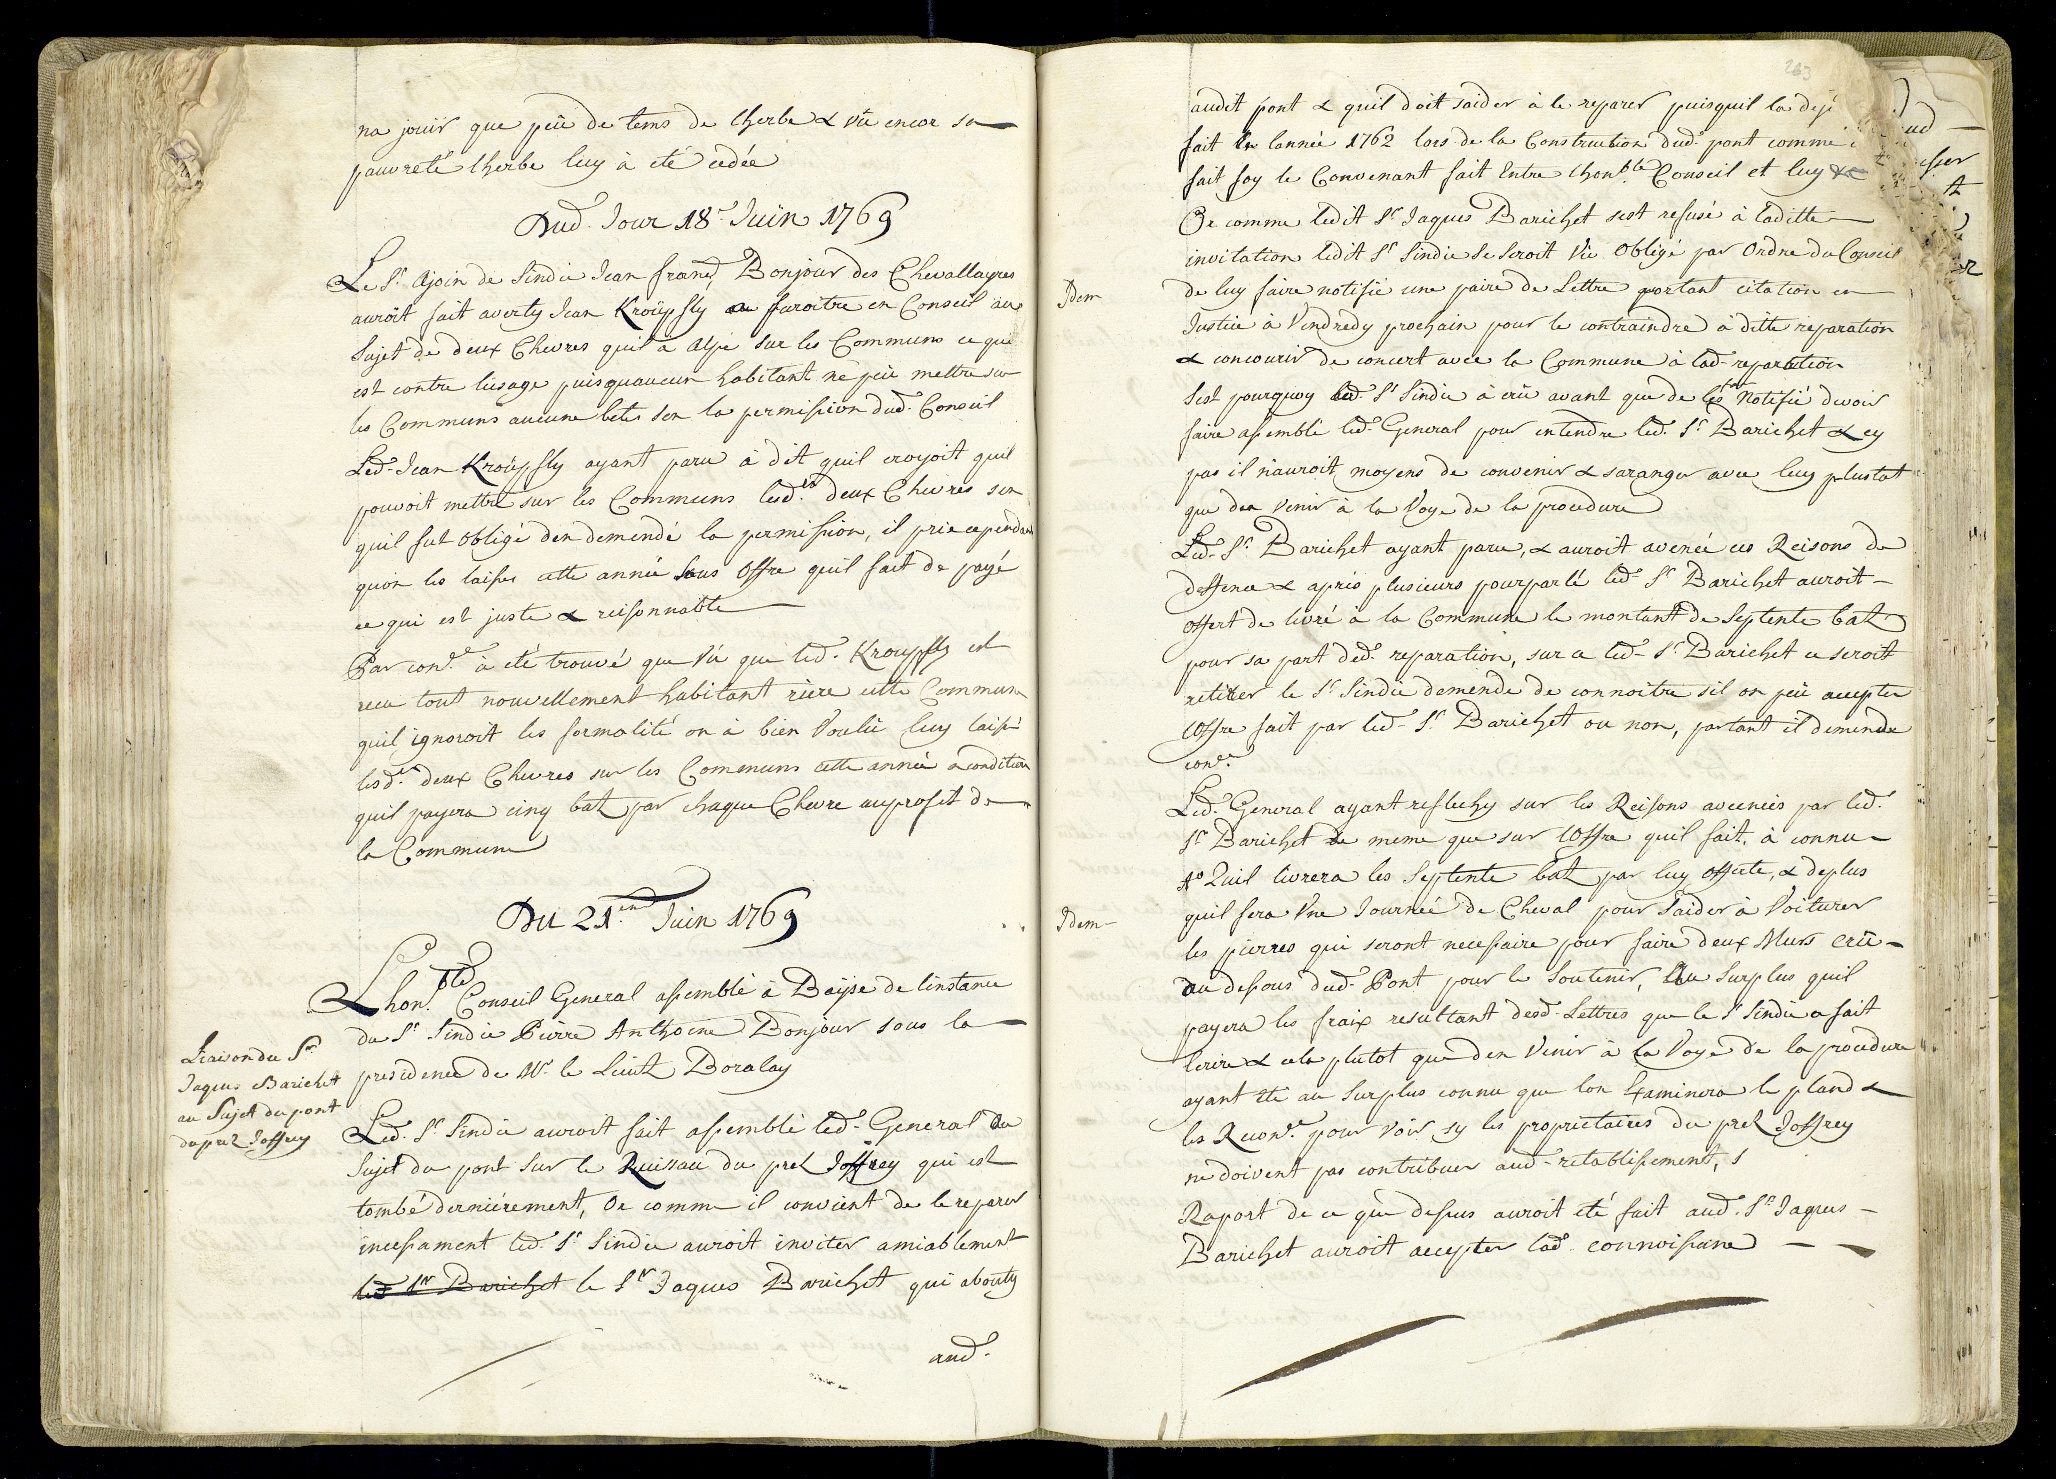 na jouir que peü de tems de lherbe & vû encor sa
pauvreté lherbe luy à eté cedée
Dud. Jour 18.e Juin 1769
Le Sr. Ajoin de Sindic Jean franç. Bonjour des Chevallayres
auroit fait averty Jean Kroüpfly paroitre en Conseil au
Sujet de deux Chevres quil à Alpé sur les Communs ce qui
est contre lusage puisquaucun habitant ne peü mettre sur
les Communs aucune bete sen la permission dud. Conseil
Led. Jean Kroüpfly ayant paru à dit quil croyoit quil
pouvoit mettre sur les Communs lesd.es deux Chevres sen
quil fut obligé den demendé la permission, il prie cependant
quon les laisses cette année sous offre quil fait de payé
ce qui est juste & reisonnable
Par con.ce à eté trouvé que vû que led. Kroupfly est
reçu tout nouvellement habitant riere cette Commune
quil ignoroit les formalité on à bien voulû luy laissé
lesd.es deux Chevres sur les Communs cette année à condition
quil payera cinq batz par chaque Chevre au profit de
la Commune
Du 21.em Juin 1769
Lhon.ble Conseil General assemblé à Bayse de linstance
du Sr. Sindic Pierre Anthoine Bonjour sous la
presidence de Mr. le Lieut. Boralay
Liaison du Sr.
Jaques Barichet
au Sujet du pont
du prez Joffrey
Led. Sr. Sindic auroit fait assemblé led. General au
Sujet du pont sur le Ruissau du prez Joffrey qui est
tombé dernièrement, Or comme il convient de le reparer
incessament led. Sr. Sindic auroit inviter amiablement
led Sr Barichet le Sr Jaques Barichet qui abouty
aud.
263
audit pont & quil doit saider à le reparer puisquil la deja
fait en lannée 1762 lors de la Construction dud. pont comme
fait foy le Convenant fait Entre lhon.ble Conseil et luy
Or comme ledit Sr Jaques Barichet sest refusé à laditte
invitation ledit Sr Sindic se seroit vû obligé par Ordre du Conseil
Idem
de luy faire notifié une paire de Lettre portant citation en
Justice à Vendredy prochain pour le contraindre à ditte reparation
& concourir de concert avec la Commune à lad. reparation
Sest pourquoy led. Sr Sindic à crû avant que de les Notifié devoir
faire assemblé led. General pour entendre led. Sr Barichet & cy
pas il nauroit moyens de convenir & saranger avec luy plustot
que den venir à la Voye de la procedure
Led. Sr. Barichet ayant paru, & auroit avencé ces Reisons de
deffence & après plusieurs pourparlé led. Sr Barichet auroit
offert de livré à la Commune le montant de septente batz
pour sa part ded. reparation, sur ce led. Sr. Barichet ce seroit
retirer le Sr Sindic demende de connoitre sil on peü accepter
loffre fait par led. Sr. Barichet ou non, partant il demende
con.ce
Led. General ayant reflechy sur les Reisons avencées par led.
Sr Barichet de meme que sur loffre quil fait, à connu
Idem
Quil livrera les septente batz par luy offerte, & deplus
quil fera Vne Journée de Cheval pour saider à Voiturer
les pierres qui seront necessaire pour faire deux Murs crû
au dessous dud. Pont pour le soutenir, au surplus quil
payera les fraix resultant desd. Lettres que le Sr Sindic a fait
lerire & cela plutot que den venir à la Voye de la procedure
ayant eté au surplus connu que lon Examinera le pland &
les Recon.ce pour voir sy les proprietaires du prez Joffrey
ne doivent pas contribuer aud. retablissement,
Raport de ce que dessus auroit eté fait aud. Sr. Jaques
Barichet auroit accepter lad. connoissance